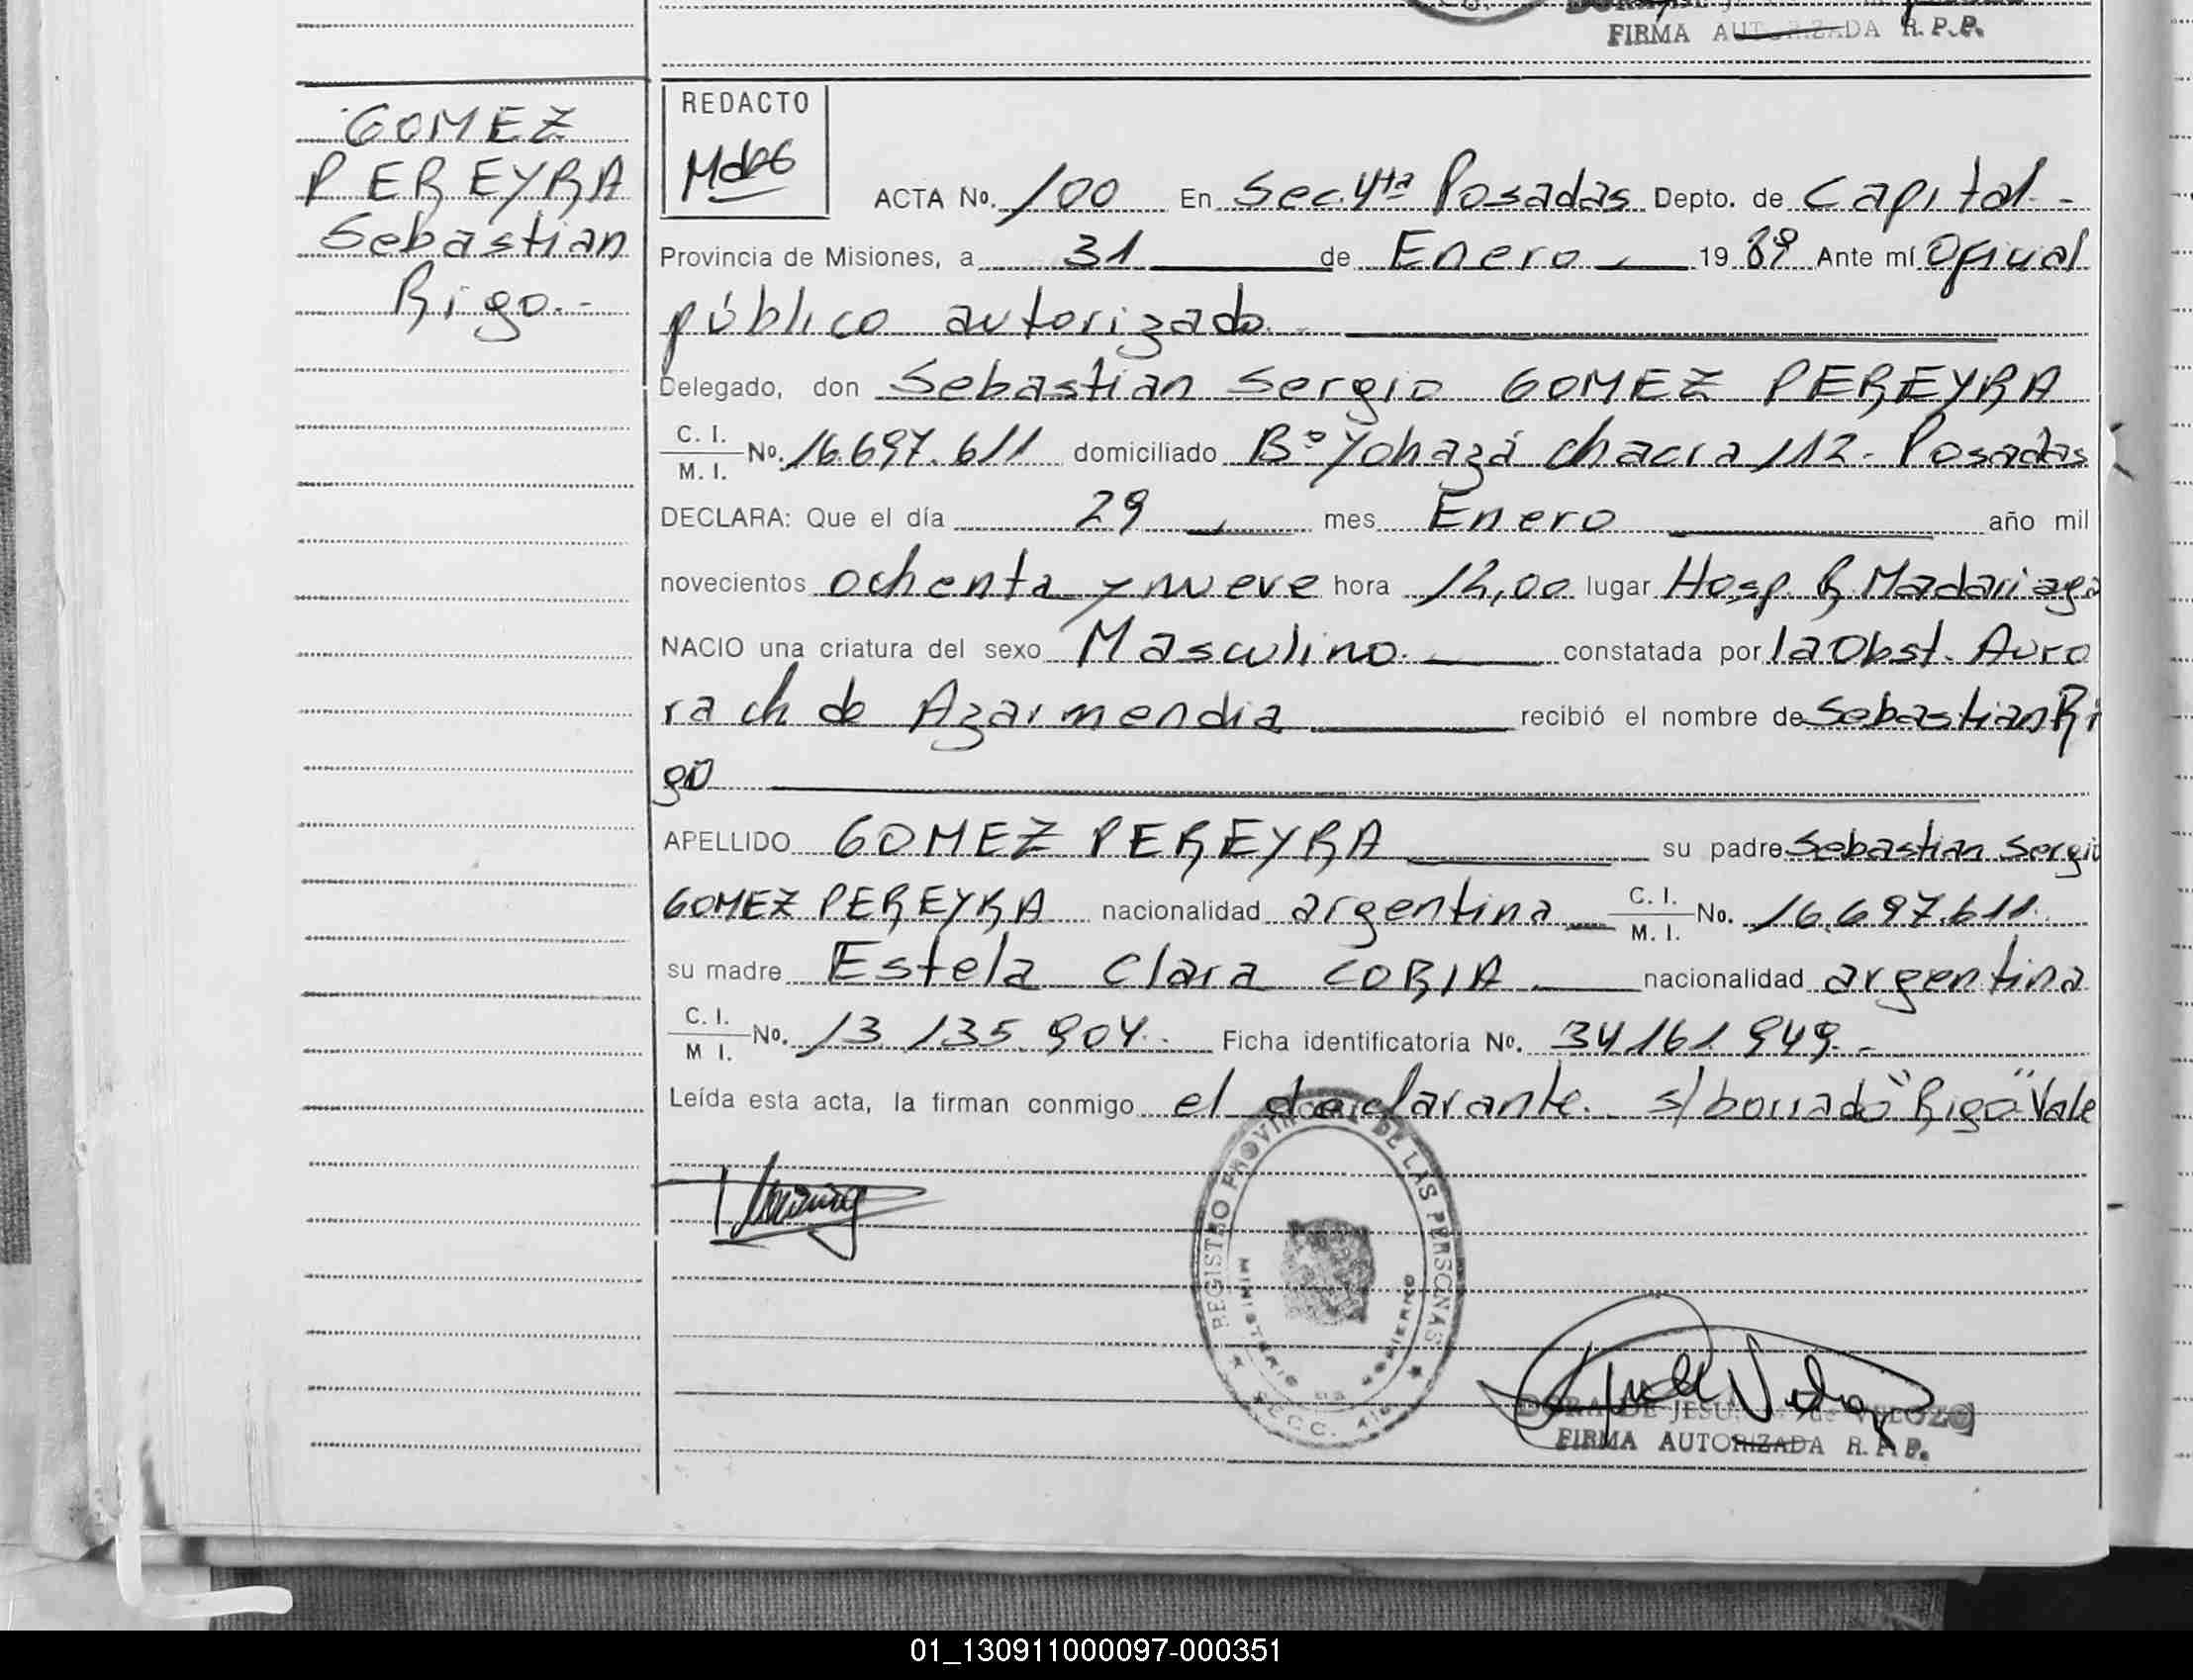 FIRMA AUTORIZADA R.P.P.
GOMEZ
PEREYRA
Sebastian
Rigo.-
REDACTO
ACTA No. 100 En Sec. 4ta Posadas Depto. de Capital.-
Provincia de Misiones, a 31 de Enero 1989 Ante mí Oficial
público autorizado.
Delegado, don Sebastian Sergio GOMEZ PEREYRA
C. I.
M. I. No. 16.697.611 domiciliado B° Yohazá chacra 112. Posadas
DECLARA: Que el día 29 mes Enero año mil
novecientos ochenta y nueve hora 12,00 lugar Hosp. R. Madariaga
NACIO una criatura del sexo Masculino. constatada por la Obst. Auro
ra ch de Azarmendia recibió el nombre de Sebastian Ri
go
APELLIDO GOMEZ PEREYRA su padre Sebastian Sergio
GOMEZ PEREYRA nacionalidad argentina C. I.
M. I. No. 16.697.611.
su madre Estela Clara CORIA nacionalidad argentina
C. I.
M I. No. 13.135.904. Ficha identificatoria No. 34161949.-
Leída esta acta, la firman conmigo el declarante. s/borrado "Rigo" Vale
REGISTRO PROVINCIAL DE LAS PERSONAS
MINISTERIO DE GOBIERNO
SECC. 4ta
DORA DE JESUS VELOZO
FIRMA AUTORIZADA R.P.P.
01_130911000097-000351